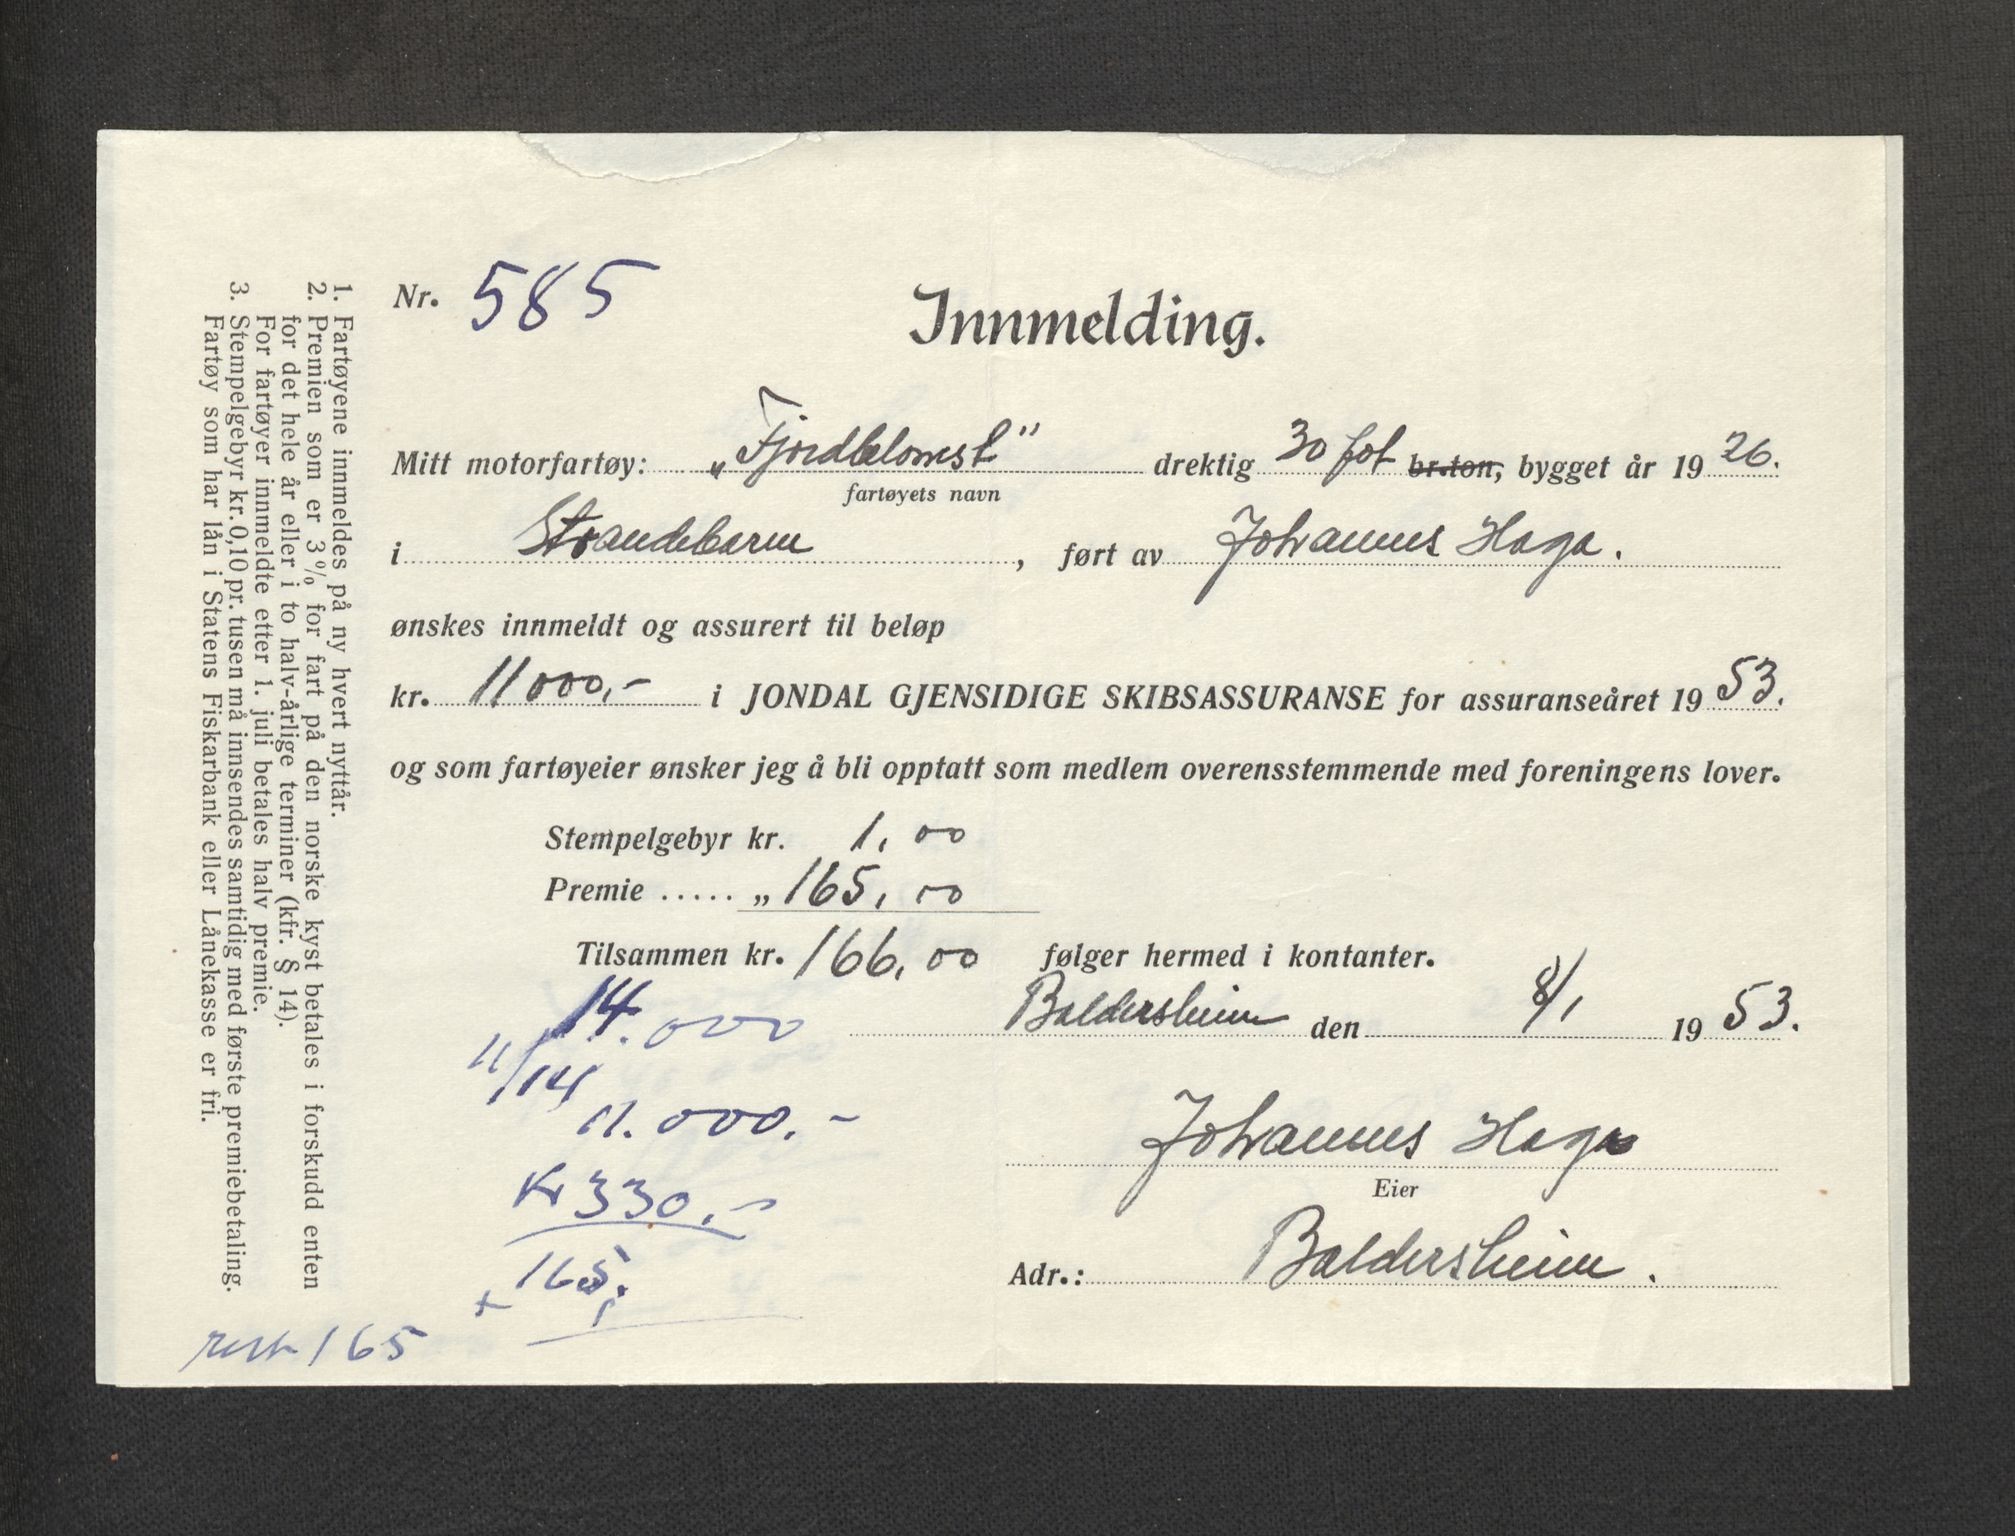 Nr. 585
Innmelding.
Mitt motorfartøy: „Fjordblomst“ drektig 30 fot br.ton, bygget år 1926.
fartøyets navn
i Strandebarm, ført av Johannes Haga.
ønskes innmeldt og assurert til beløp
kr. 11000,- i JONDAL GJENSIDIGE SKIBSASSURANSE for assuranseåret 1953.
og som fartøyeier ønsker jeg å bli opptatt som medlem overensstemmende med foreningens lover.
Stempelgebyr kr. 1,00
Premie ..... „ 165,00
Tilsammen kr. 166,00 følger hermed i kontanter.
Baldersheim den 8/1 1953.
Johannes Haga
Eier
Adr.: Baldersheim.
14.000
11/14
11.000.-
Kr 330.-
+ 165.
rest 165
1. Fartøyene innmeldes på ny hvert nyttår.
2. Premien som er 3% for fart på den norske kyst betales i forskudd enten
for det hele år eller i to halv-årlige terminer (kfr. § 14).
For fartøyer innmeldte etter 1. juli betales halv premie.
3. Stempelgebyr kr. 0,10 pr. tusen må innsendes samtidig med første premiebetaling.
Fartøy som har lån i Statens Fiskarbank eller Lånekasse er fri.